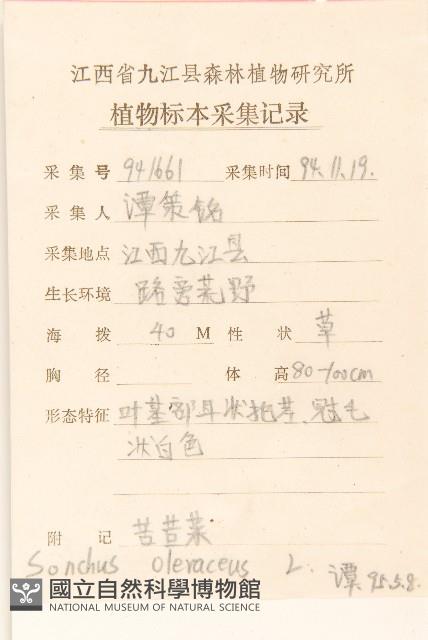 江西省九江县森林植物研究所
植物标本采集记录
采集号 941661 采集时间 94.11.19.
采集人 谭策铭
采集地点 江西九江县
生长环境 路旁荒野
海拨 40 M 性状 草
胸径 体高 80-100cm
形态特征 叶基部耳状抱茎、冠毛
状白色
附记 苦苣菜
Sonchus oleraceus L. 谭 95.5.8.
國立自然科學博物館
NATIONAL MUSEUM OF NATURAL SCIENCE